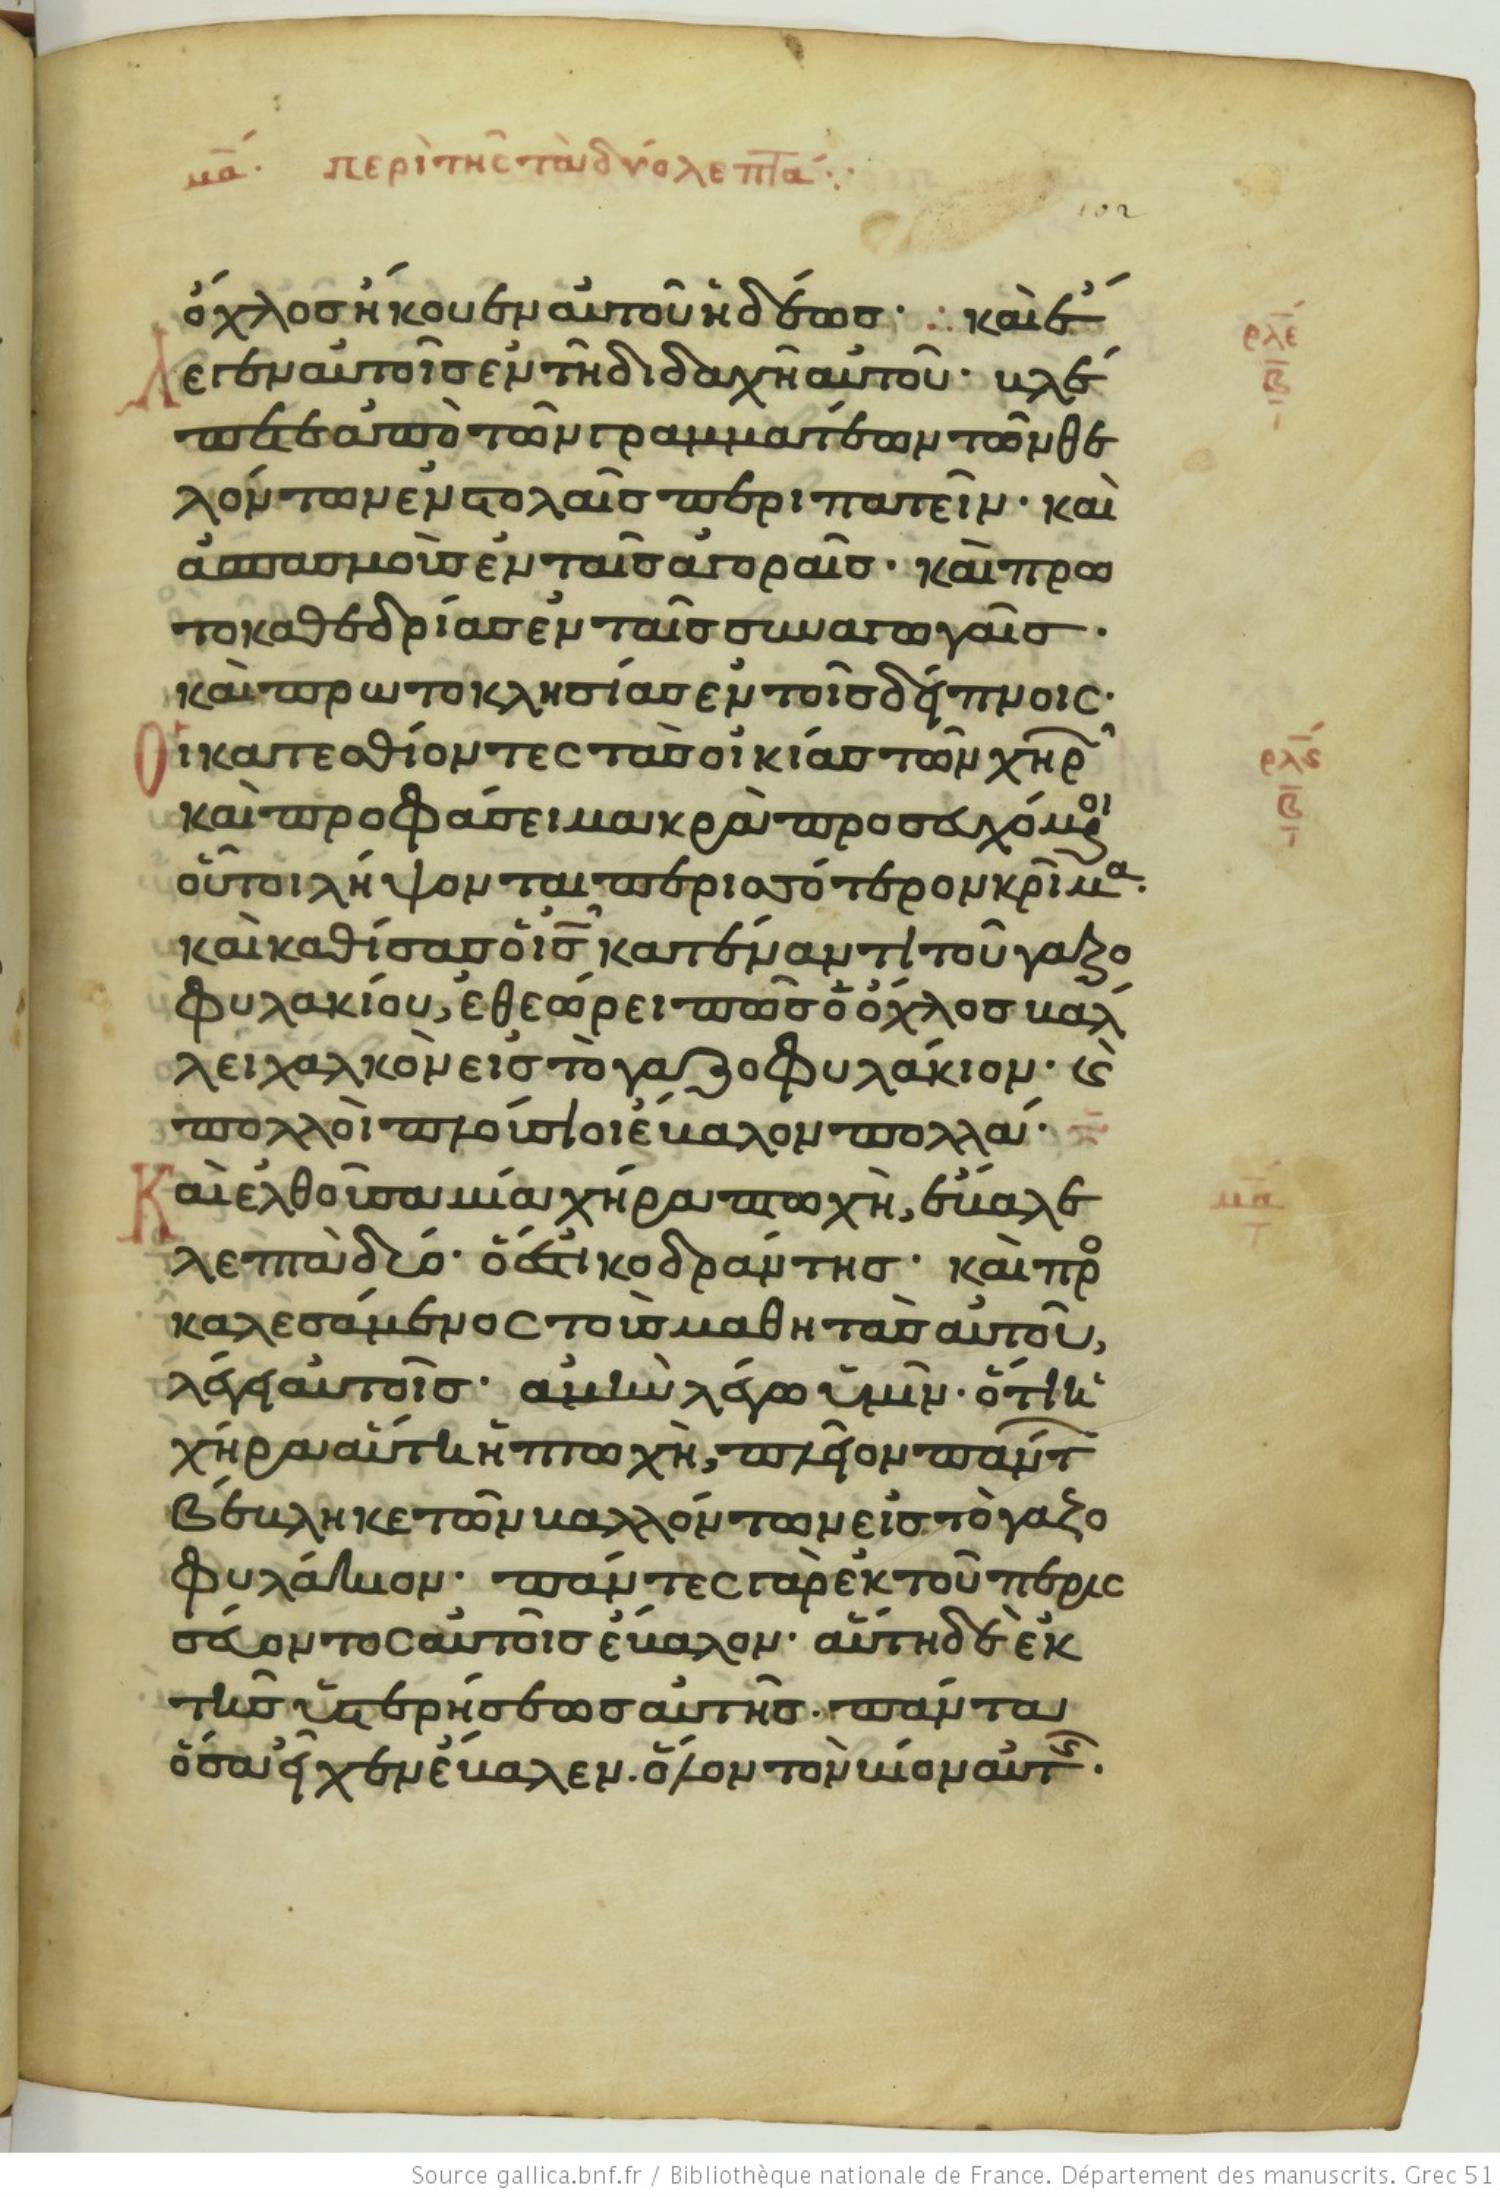 μα. περὶ τῆς τὰ δύο λεπτά
102
ὄχλος ἤκουεν αὐτοῦ ἡδέως· καὶ ἔ
λεγεν αὐτοῖς ἐν τῆ διδαχῆ αὐτοῦ· βλέ
πετε ἀπὸ τῶν γραμματέων τῶν θε
λόντων ἐν στολαῖς περιπατεῖν· καὶ
ἀσπασμοὺς ἐν ταῖς ἀγοραῖς· καὶ πρω
τοκαθεδρίας ἐν ταῖς συναγωγαῖς·
καὶ πρωτοκλησίας ἐν τοῖς δείπνοις·
Οἱ κατεσθίοντες τὰς οἰκίας τῶν χηρῶ
καὶ προφάσει μακρὰ προσευχόμενοι
οὗτοι λήψονται περισσότερον κρῖμα·
καὶ καθίσας ὁ ις κατέναντι τοῦ γαζο
φυλακίου, ἐθεώρει πῶς ὁ ὄχλος βάλ
λει χαλκὸν εἰς τὸ γαζοφυλάκιον· καὶ
πολλοὶ πλούσιοι ἔβαλον πολλά·
Καὶ ἐλθοῦσα μία χήρα πτωχὴ, ἔβαλε
λεπτὰ δύο· ὅ ἐστι κοδράντης· καὶ προ
καλεσάμενος τοὺς μαθητὰς αὐτοῦ,
λέγει αὐτοῖς· ἀμὴν λέγω ὑμῖν· ὅτι ἡ
χήρα αὕτη ἡ πτωχὴ, πλεῖον πάντων
βέβληκε τῶν βαλλόντων εἰς τὸ γαζο
φυλάκιον· πάντες γὰρ ἐκ τοῦ περις
σεύοντος αὐτοῖς ἔβαλον· αὕτη δὲ ἐκ
τῆς ὑστερήσεως αὐτῆς· πάντα
ὅσα εἶχεν ἔβαλεν· ὅλον τὸν βίον αὐτῆς·
ρλε
β
ρλς
β
μα
Source gallica.bnf.fr / Bibliothèque nationale de France. Département des manuscrits. Grec 51